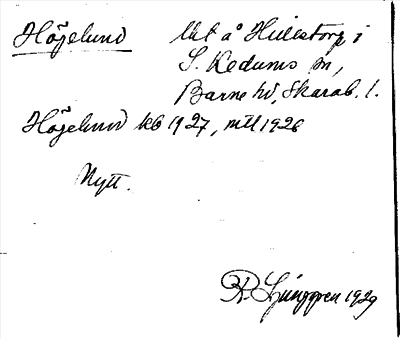 Höjelund Ut å Hulestorp i
S. Kedums sn,
Barne hd, Skarab. l.
Höjelund kb 1927, mtl 1926
Nytt.
R. Ljunggren 1929